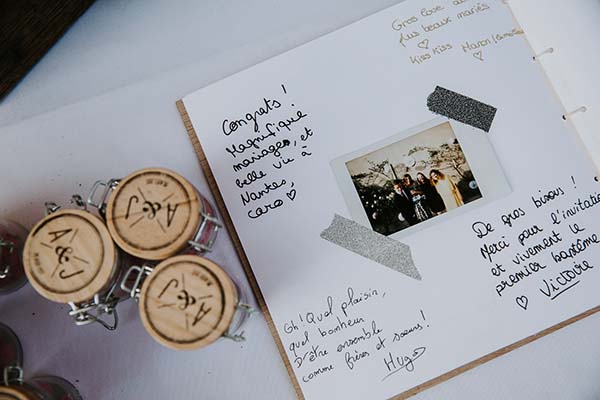 Gros love a
plus beaux mariés
♡
Kiss Kiss Manon
Congrats!
Magnifique
mariages, et
belle vie à
Nantes,
Caro ♡
De gros bisous!
Merci pour l'invitation
et vivement le
premier baptême
♡ Victoire
Oh! Quel plaisir,
quel bonheur
D'être ensemble
comme frères et sœurs!
Hugo
A&J
A&J
A&J